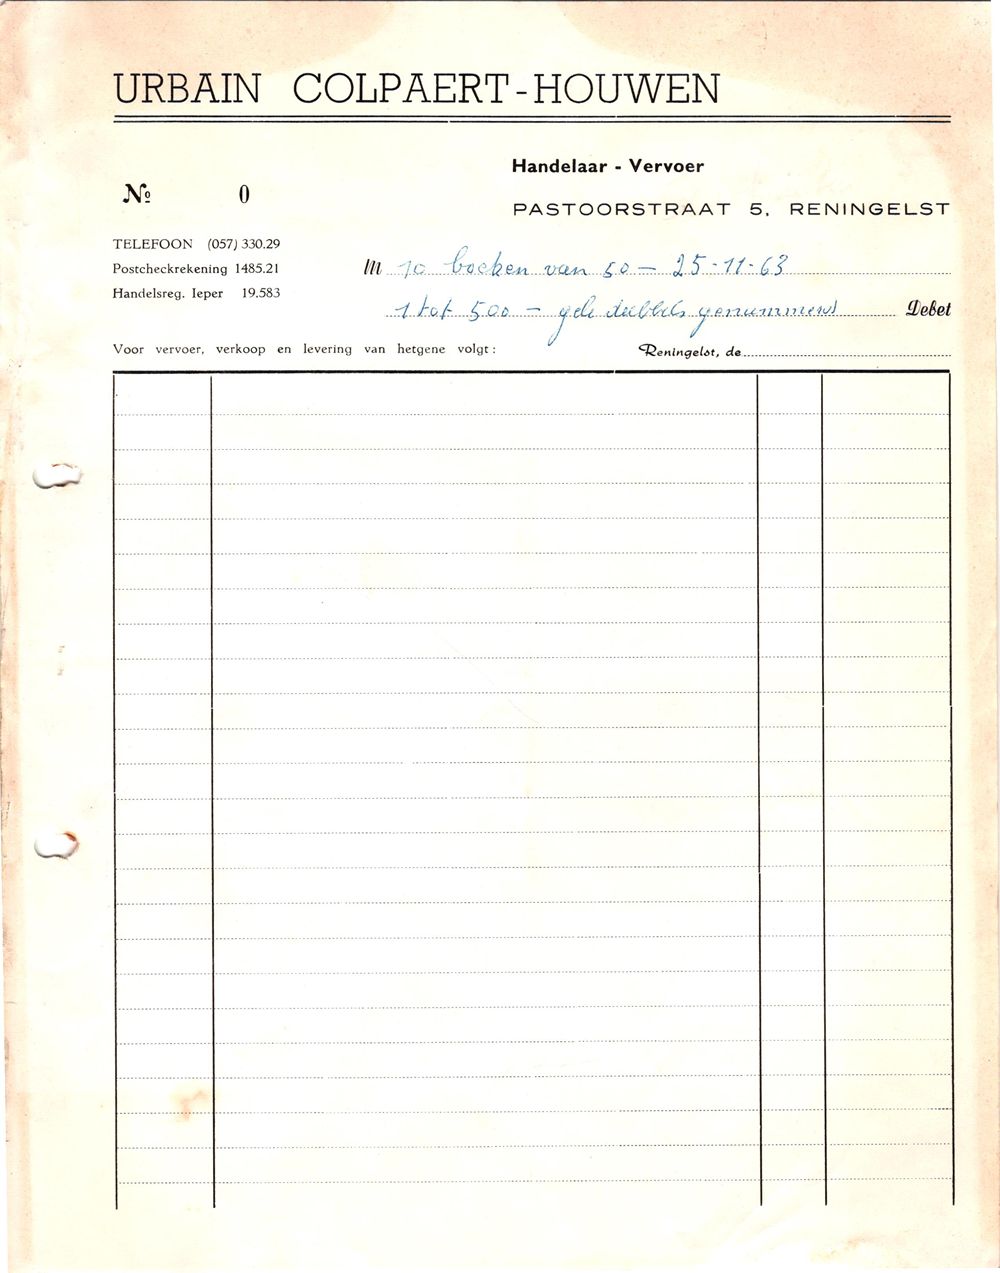 URBAIN COLPAERT-HOUWEN
Handelaar - Vervoer
№ 0
PASTOORSTRAAT 5, RENINGELST
TELEFOON (057) 330.29
Postcheckrekening 1485.21
Handelsreg. Ieper 19.583
M 10 boeken van 50 - 25-11-63
1 tot 500 - gele dubbels genummerd Debet
Voor vervoer, verkoop en levering van hetgene volgt :
Reningelst, de